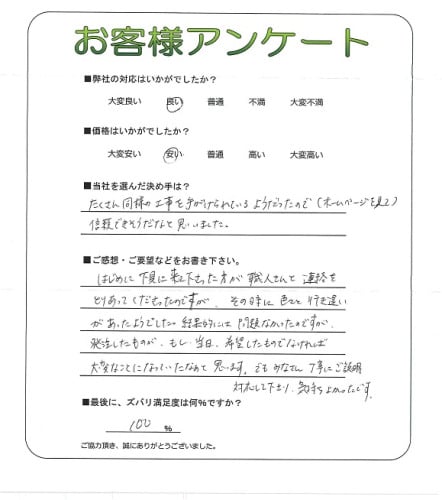 お客様アンケート
■弊社の対応はいかがでしたか？
大変良い 良い 普通 不満 大変不満
■価格はいかがでしたか？
大変安い 安い 普通 高い 大変高い
■当社を選んだ決め手は？
たくさん同様の工事を手がけられているようだったので（ホームページを見て）
信頼できそうだなと思いました。
■ご感想・ご要望などをお書き下さい。
はじめに下見に来て下さった方が職人さんと連絡を
とりあってくださったのですが、その時に色々と行き違い
があったようでした。結果的には問題なかったのですが、
発注したものが、もし、当日、希望したものでなければ
大変なことになっていたなぁと思います。でもみなさん丁寧にご説明
対応して下さり、気持ちよかったです。
■最後に、ズバリ満足度は何％ですか？
100 %
ご協力頂き、誠にありがとうございました。